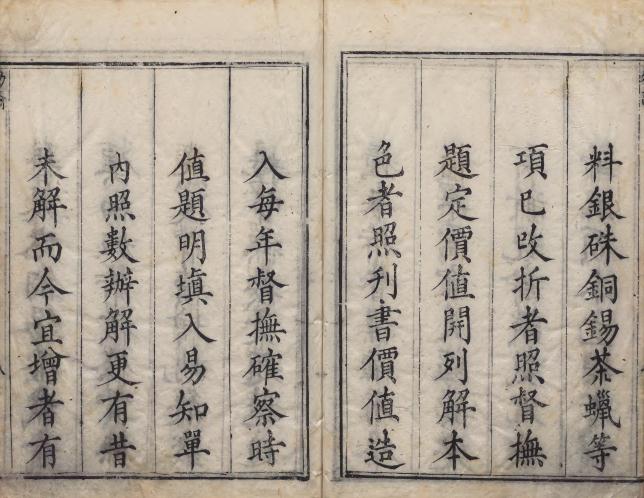 料銀硃銅錫茶蠟等
項已改折者照督撫
題定價值開列解本
色者照刋書價值造
入每年督撫確察時
值題明塡入易知單
內照數辦解更有昔
未解而今宜增者有